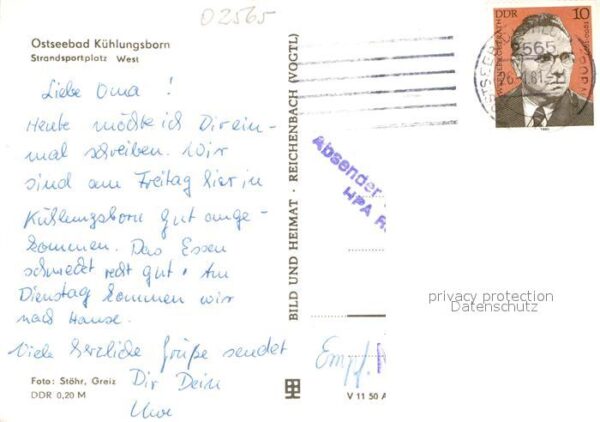 02565
Ostseebad Kühlungsborn
Strandsportplatz West
Liebe Oma !
Heute möchte ich Dir ein-
mal schreiben. Wir
sind am Freitag hier in
Kühlungsborn gut ange-
kommen. Das Essen
schmeckt recht gut. Am
Dienstag kommen wir
nach Hause.
Viele herzliche Grüße sendet
Dir Dein
Uwe
Foto: Stöhr, Greiz
DDR 0,20 M
BILD UND HEIMAT · REICHENBACH (VOGTL)
V 11 50 A
Absender
HPA R
Empf.
DDR 10
2565
privacy protection
Datenschutz